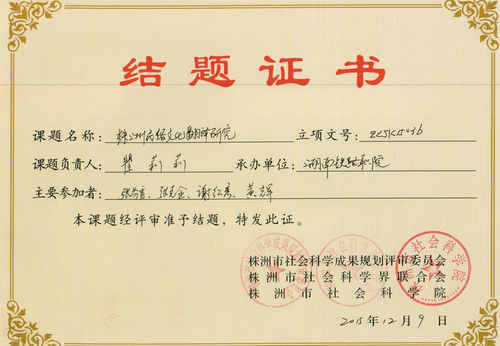 结题证书
课题名称：株洲民俗文化翻译研究 立项文号：
课题负责人：瞿莉莉 承办单位：湖南铁路科技学院
主要参加者：谢红秀、黄辉
本课题经评审准予结题，特发此证。
株洲市社会科学成果规划评审委员会
株洲市社会科学界联合会
株洲市社会科学院
2015年12月9日